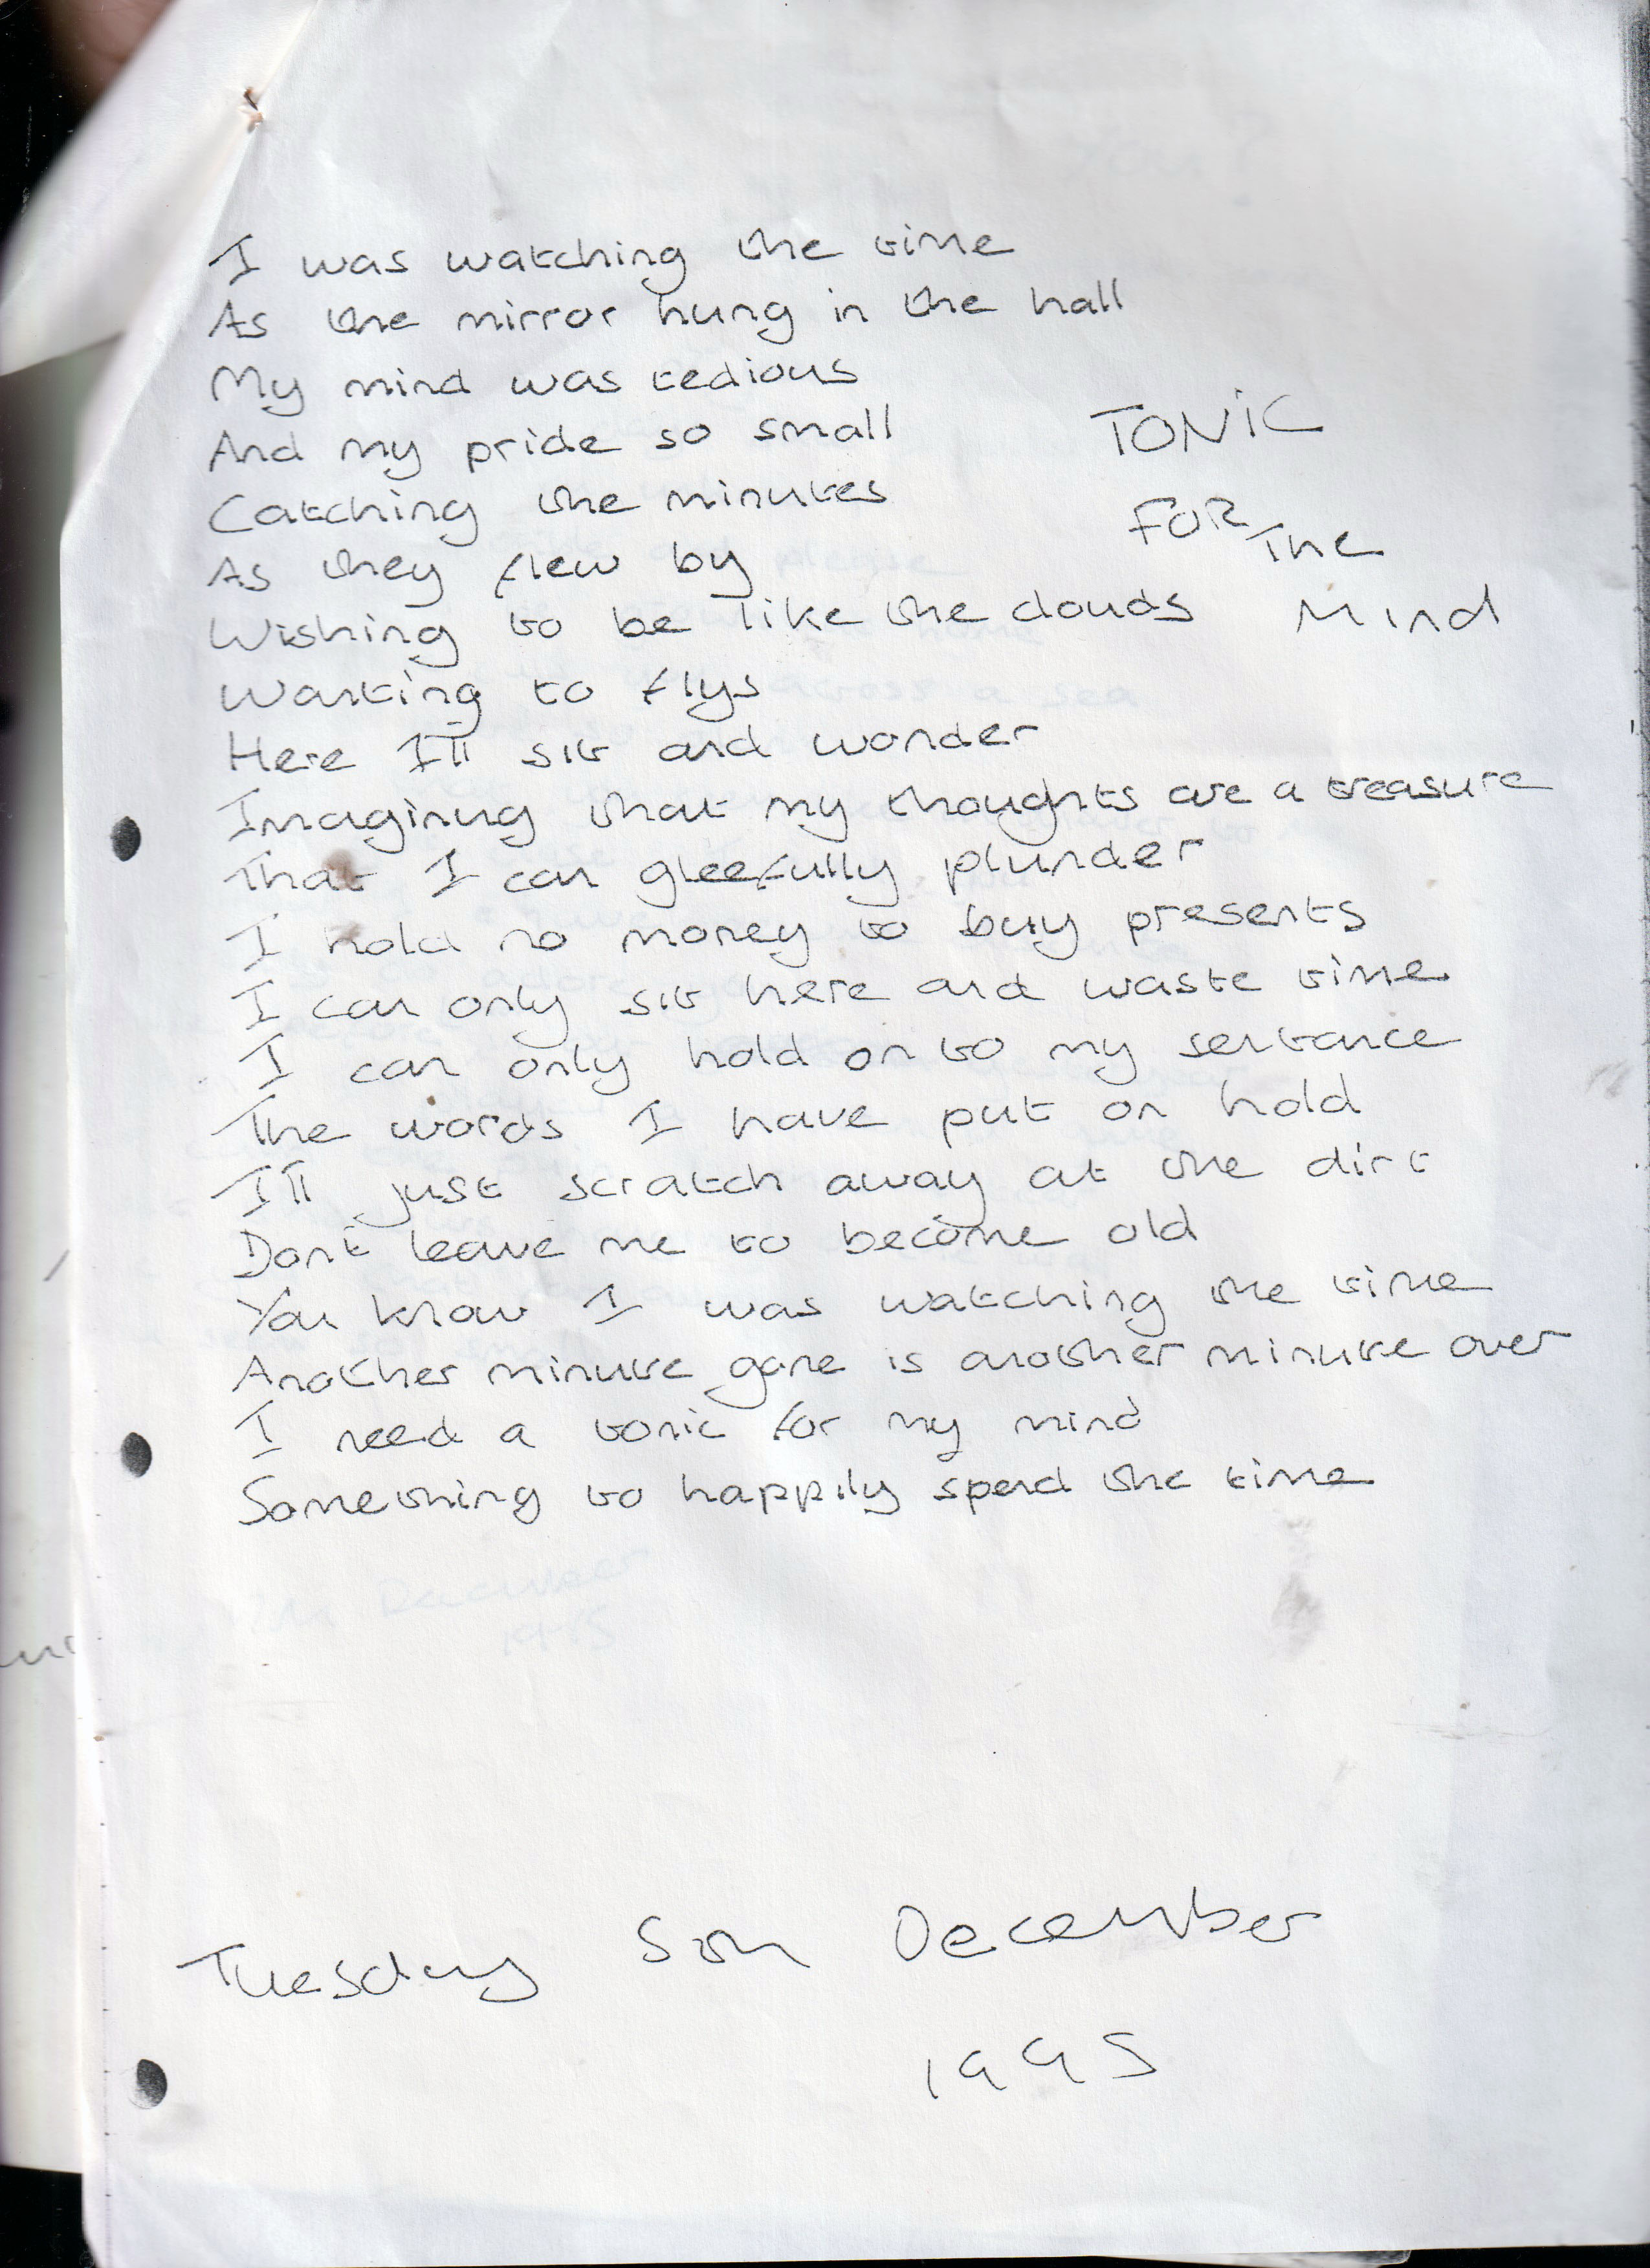 I was watching the time
As the mirror hung in the hall
My mind was tedious
And my pride so small
TONIC
Catching the minutes
FOR The
As they flew by
Wishing to be like the clouds
Mind
Wanting to flys
Here I'll sit and wonder
Imagining that my thoughts are a treasure
That I can gleefully plunder
I hold no money to buy presents
I can only sit here and waste time
I can only hold on to my sentance
The words I have put on hold
I'll just scratch away at the dirt
Don't leave me to become old
You know I was watching the time
Another minute gone is another minute over
I need a tonic for my mind
Something to happily spend the time
Tuesday 5th December
1995